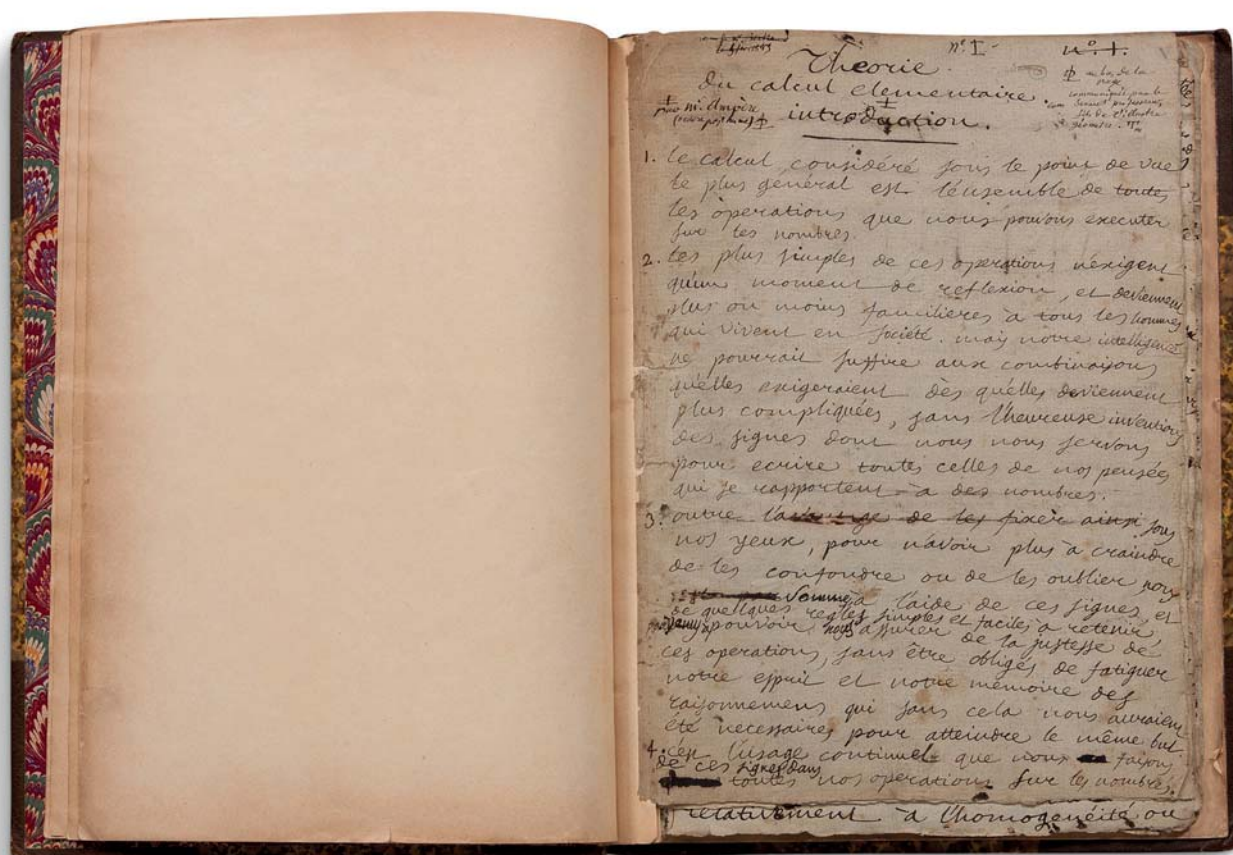 n.º 1
n.º 1.
Théorie
Du calcul elementaire.
introduction.
par m. Ampère
au bas de la
page
1. le calcul, considéré sous le point de vue
le plus général est l'ensemble de toutes
les operations que nous pouvons executer
sur les nombres.
2. les plus simples de ces operations n'exigent
qu'un moment de reflexion, et deviennent
plus ou moins familieres à tous les hommes
qui vivent en société. mais notre intelligence
ne pourrait suffire aux combinaisons
qu'elles exigeraient dès qu'elles deviennent
plus compliquées, sans l'heureuse invention
des signes dont nous nous servons
pour ecrire toutes celles de nos pensées
qui se rapportent à des nombres.
3. outre l'avantage de les fixer ainsi sous
nos yeux, pour n'avoir plus à craindre
de les confondre ou de les oublier nous
sommes à l'aide de ces signes, et
de quelques regles simples et faciles à retenir,
pouvoir nous assurer de la justesse de
ces operations, sans être obligés de fatiguer
notre esprit et notre mémoire des
raisonnemens qui sans cela nous auraient
été necessaires pour atteindre le même but.
4. c'est l'usage continuel que nous faisons
de ces signes dans
toutes nos operations sur les nombres.
relativement à l'homogénéité ou